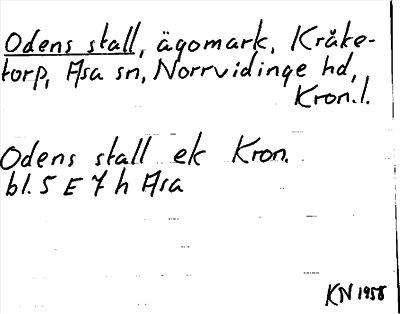 Odens stall, ägomark, Kråke-
torp, Asa sn, Norrvidinge hd,
Kron.l.
Odens stall ek Kron.
bl. 5 E 7 h Asa
KN 1958